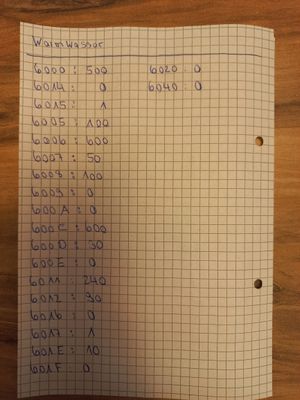 Warmwasser
6000 : 500
6014 : 0
6015 : 1
6005 : 100
6006 : 600
6007 : 50
6008 : 100
6009 : 0
600A : 0
600C : 600
600D : 30
600E : 0
6011 : 240
6012 : 30
6016 : 0
6017 : 1
601E : 10
601F 0
6020 : 0
6040 : 0